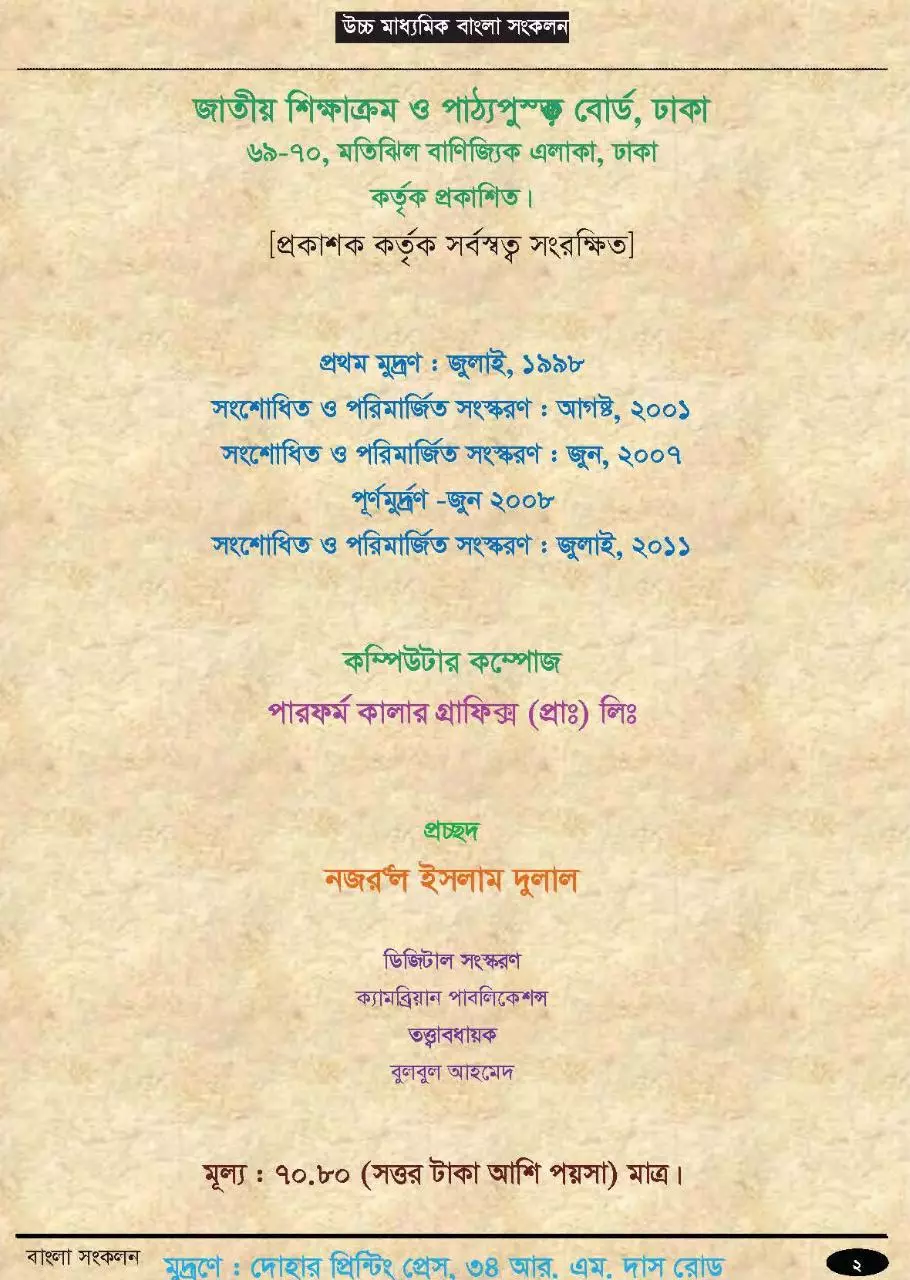 উচ্চ মাধ্যমিক বাংলা সংকলন
জাতীয় শিক্ষাক্রম ও পাঠ্যপুস্তক বোর্ড, ঢাকা
৬৯-৭০, মতিঝিল বাণিজ্যিক এলাকা, ঢাকা
কর্তৃক প্রকাশিত।
[প্রকাশক কর্তৃক সর্বস্বত্ব সংরক্ষিত]
প্রথম মুদ্রণ : জুলাই, ১৯৯৮
সংশোধিত ও পরিমার্জিত সংস্করণ : আগষ্ট, ২০০১
সংশোধিত ও পরিমার্জিত সংস্করণ : জুন, ২০০৭
পূর্ণমুর্দ্রণ -জুন ২০০৮
সংশোধিত ও পরিমার্জিত সংস্করণ : জুলাই, ২০১১
কম্পিউটার কম্পোজ
পারফর্ম কালার গ্রাফিক্স (প্রাঃ) লিঃ
প্রচ্ছদ
নজরুল ইসলাম দুলাল
ডিজিটাল সংস্করণ
ক্যামব্রিয়ান পাবলিকেশন্স
তত্ত্বাবধায়ক
বুলবুল আহমেদ
মূল্য : ৭০.৮০ (সত্তর টাকা আশি পয়সা) মাত্র।
বাংলা সংকলন
মুদ্রণে : দোহার প্রিন্টিং প্রেস, ৩৪ আর. এম. দাস রোড
২